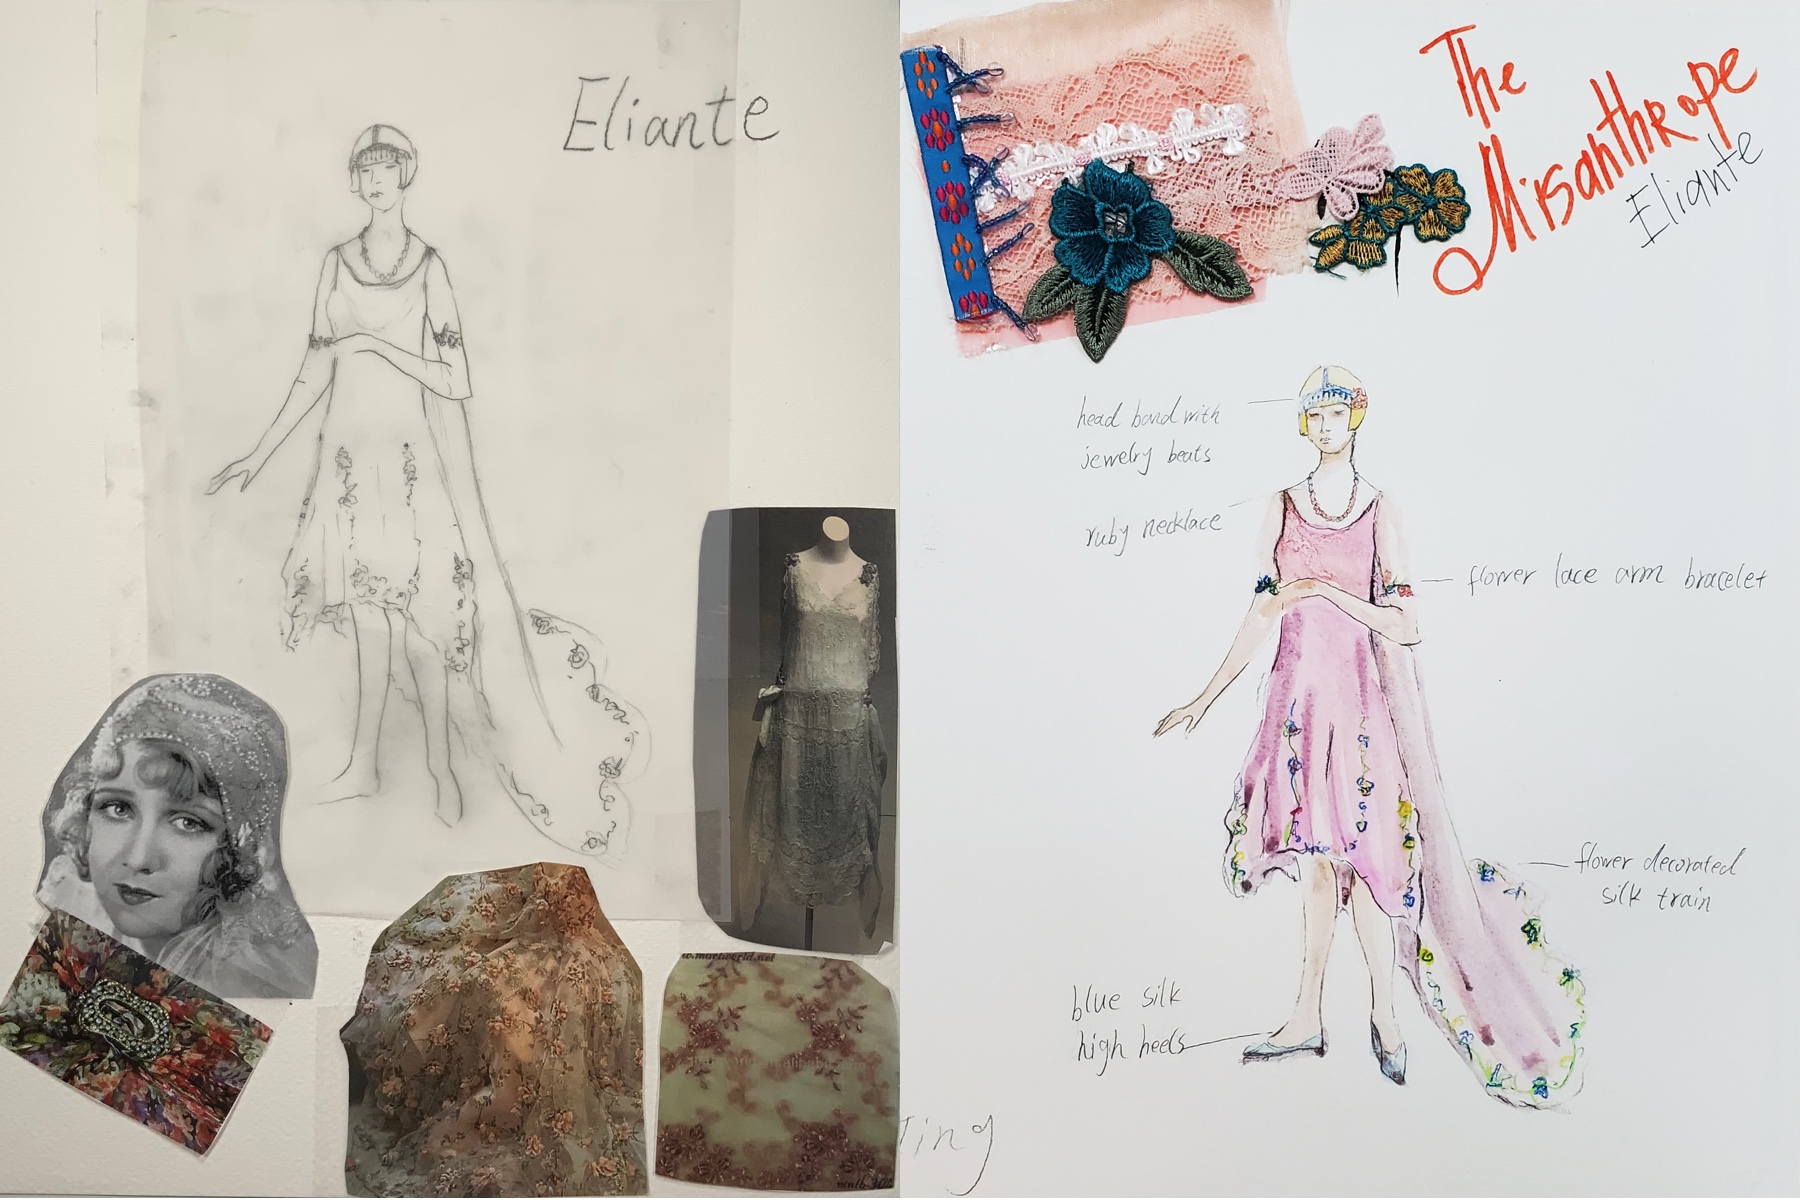 Eliante
The
Misanthrope
Eliante
head band with
jewelry beats
ruby necklace
flower lace arm bracelet
flower decorated
silk train
blue silk
high heels